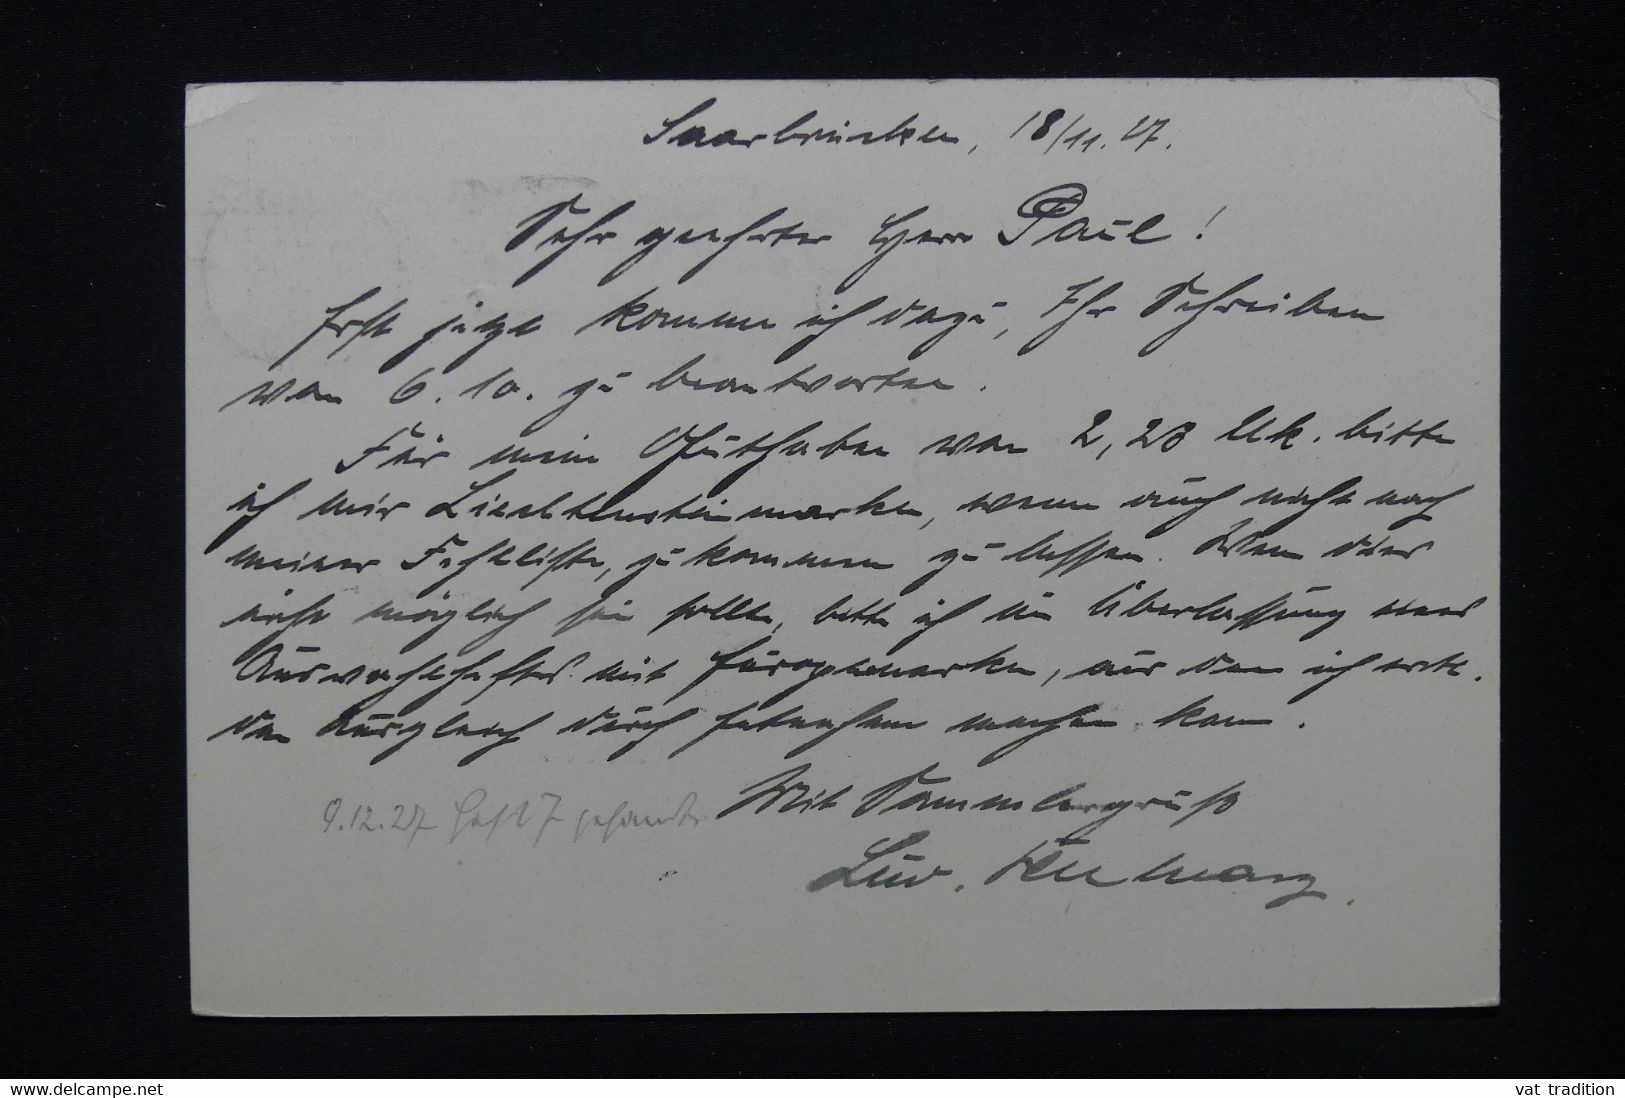 Saarbrücken, 18/11.27.
Sehr geehrter Herr Paul!
Erst jetzt komme ich dazu, Ihr Schreiben
vom 6.10. zu beantworten.
Für mein Guthaben von 2,23 Mk. bitte
ich mir Liechtensteinmarken, wenn auch nicht nach
meiner Fehlliste, zu kommen zu lassen. Wenn dies
nicht möglich sein sollte, bitte ich um Überlassung eines
Auswahlheftes mit Europamarken, aus dem ich evtl.
den Ausgleich durch Entnahme machen kann.
Mit Sammlergruß
9.12.27 Heft 7 gesandt
Ludw.
www.delcampe.net
vat tradition